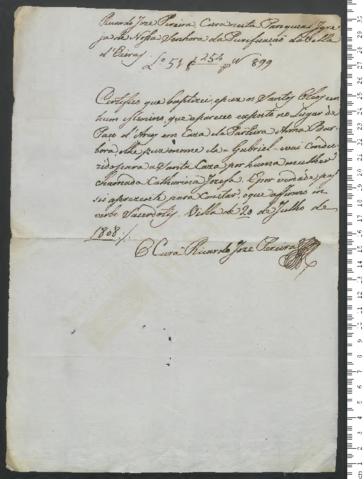 Ricardo Joze Pereira Cura nesta Paroquial Igre
ja de Nossa Senhora da Purificação da Villa
d'Oeiras
Lo 51 f 254 No 899
Certifico que baptizei e puz os Santos Oleos em
hum Menino, que apareceo exposto no Lugar de
Paco d'Arcos em Caza da Parteira Anna Bar
bora, e lhe puz nome de = Gabriel = vai condu
zido para a Santa Caza por huma mulher
chamada Catharina Jozefa. E por verdade pas
sei a prezente para constar, que affirmo in
verbo Sacerdotis. Villa de 20 de Julho de
1808
O Cura Ricardo Joze Pereira